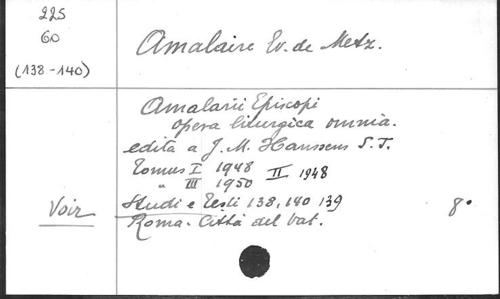 225
60
(138-140)
Amalaire Ev. de Metz.
Amalarii Episcopi
opera liturgica omnia.
edita a J. M. Hanssens S. J.
Tomus I 1948 II 1948
" III 1950
Voir Studi e Testi 138, 140 139 8°
Roma. Città del Vat.